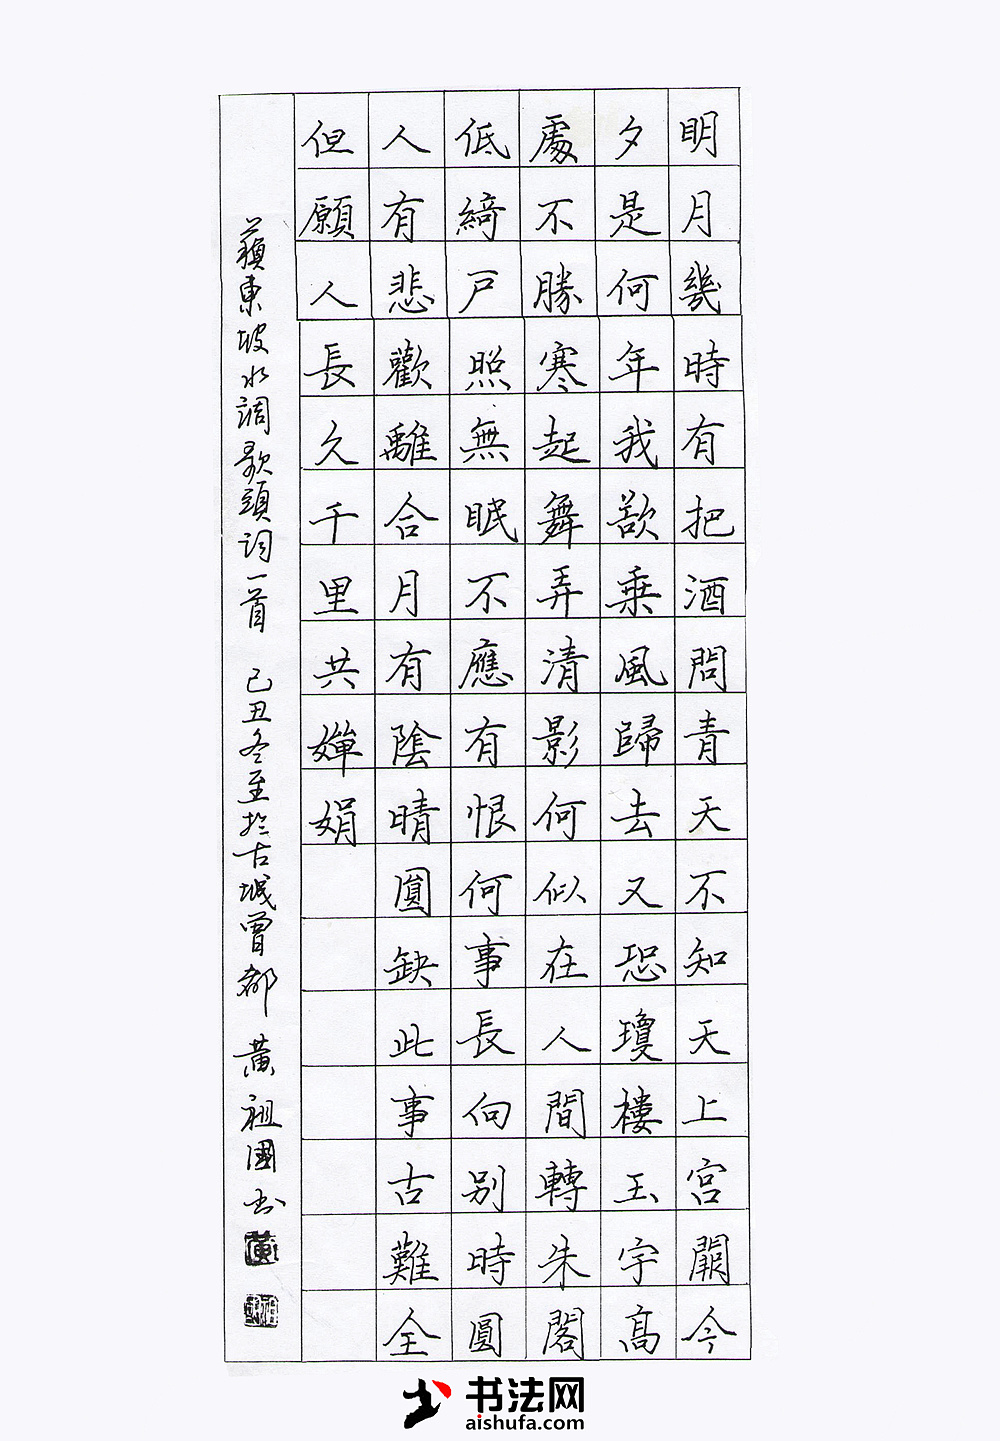 明月幾時有把酒問青天不知天上宮闕今
夕是何年我欲乗風歸去又恐瓊樓玉宇高
處不勝寒起舞弄清影何似在人間轉朱閣
低綺戸照無眠不應有恨何事長向别時圓
人有悲歡離合月有陰晴圓缺此事古難全
但願人長久千里共嬋娟
蘇東坡水調歌頭詞一首 己丑冬至於古城曾都 黄祖國书
黄
书法网
aishufa.com